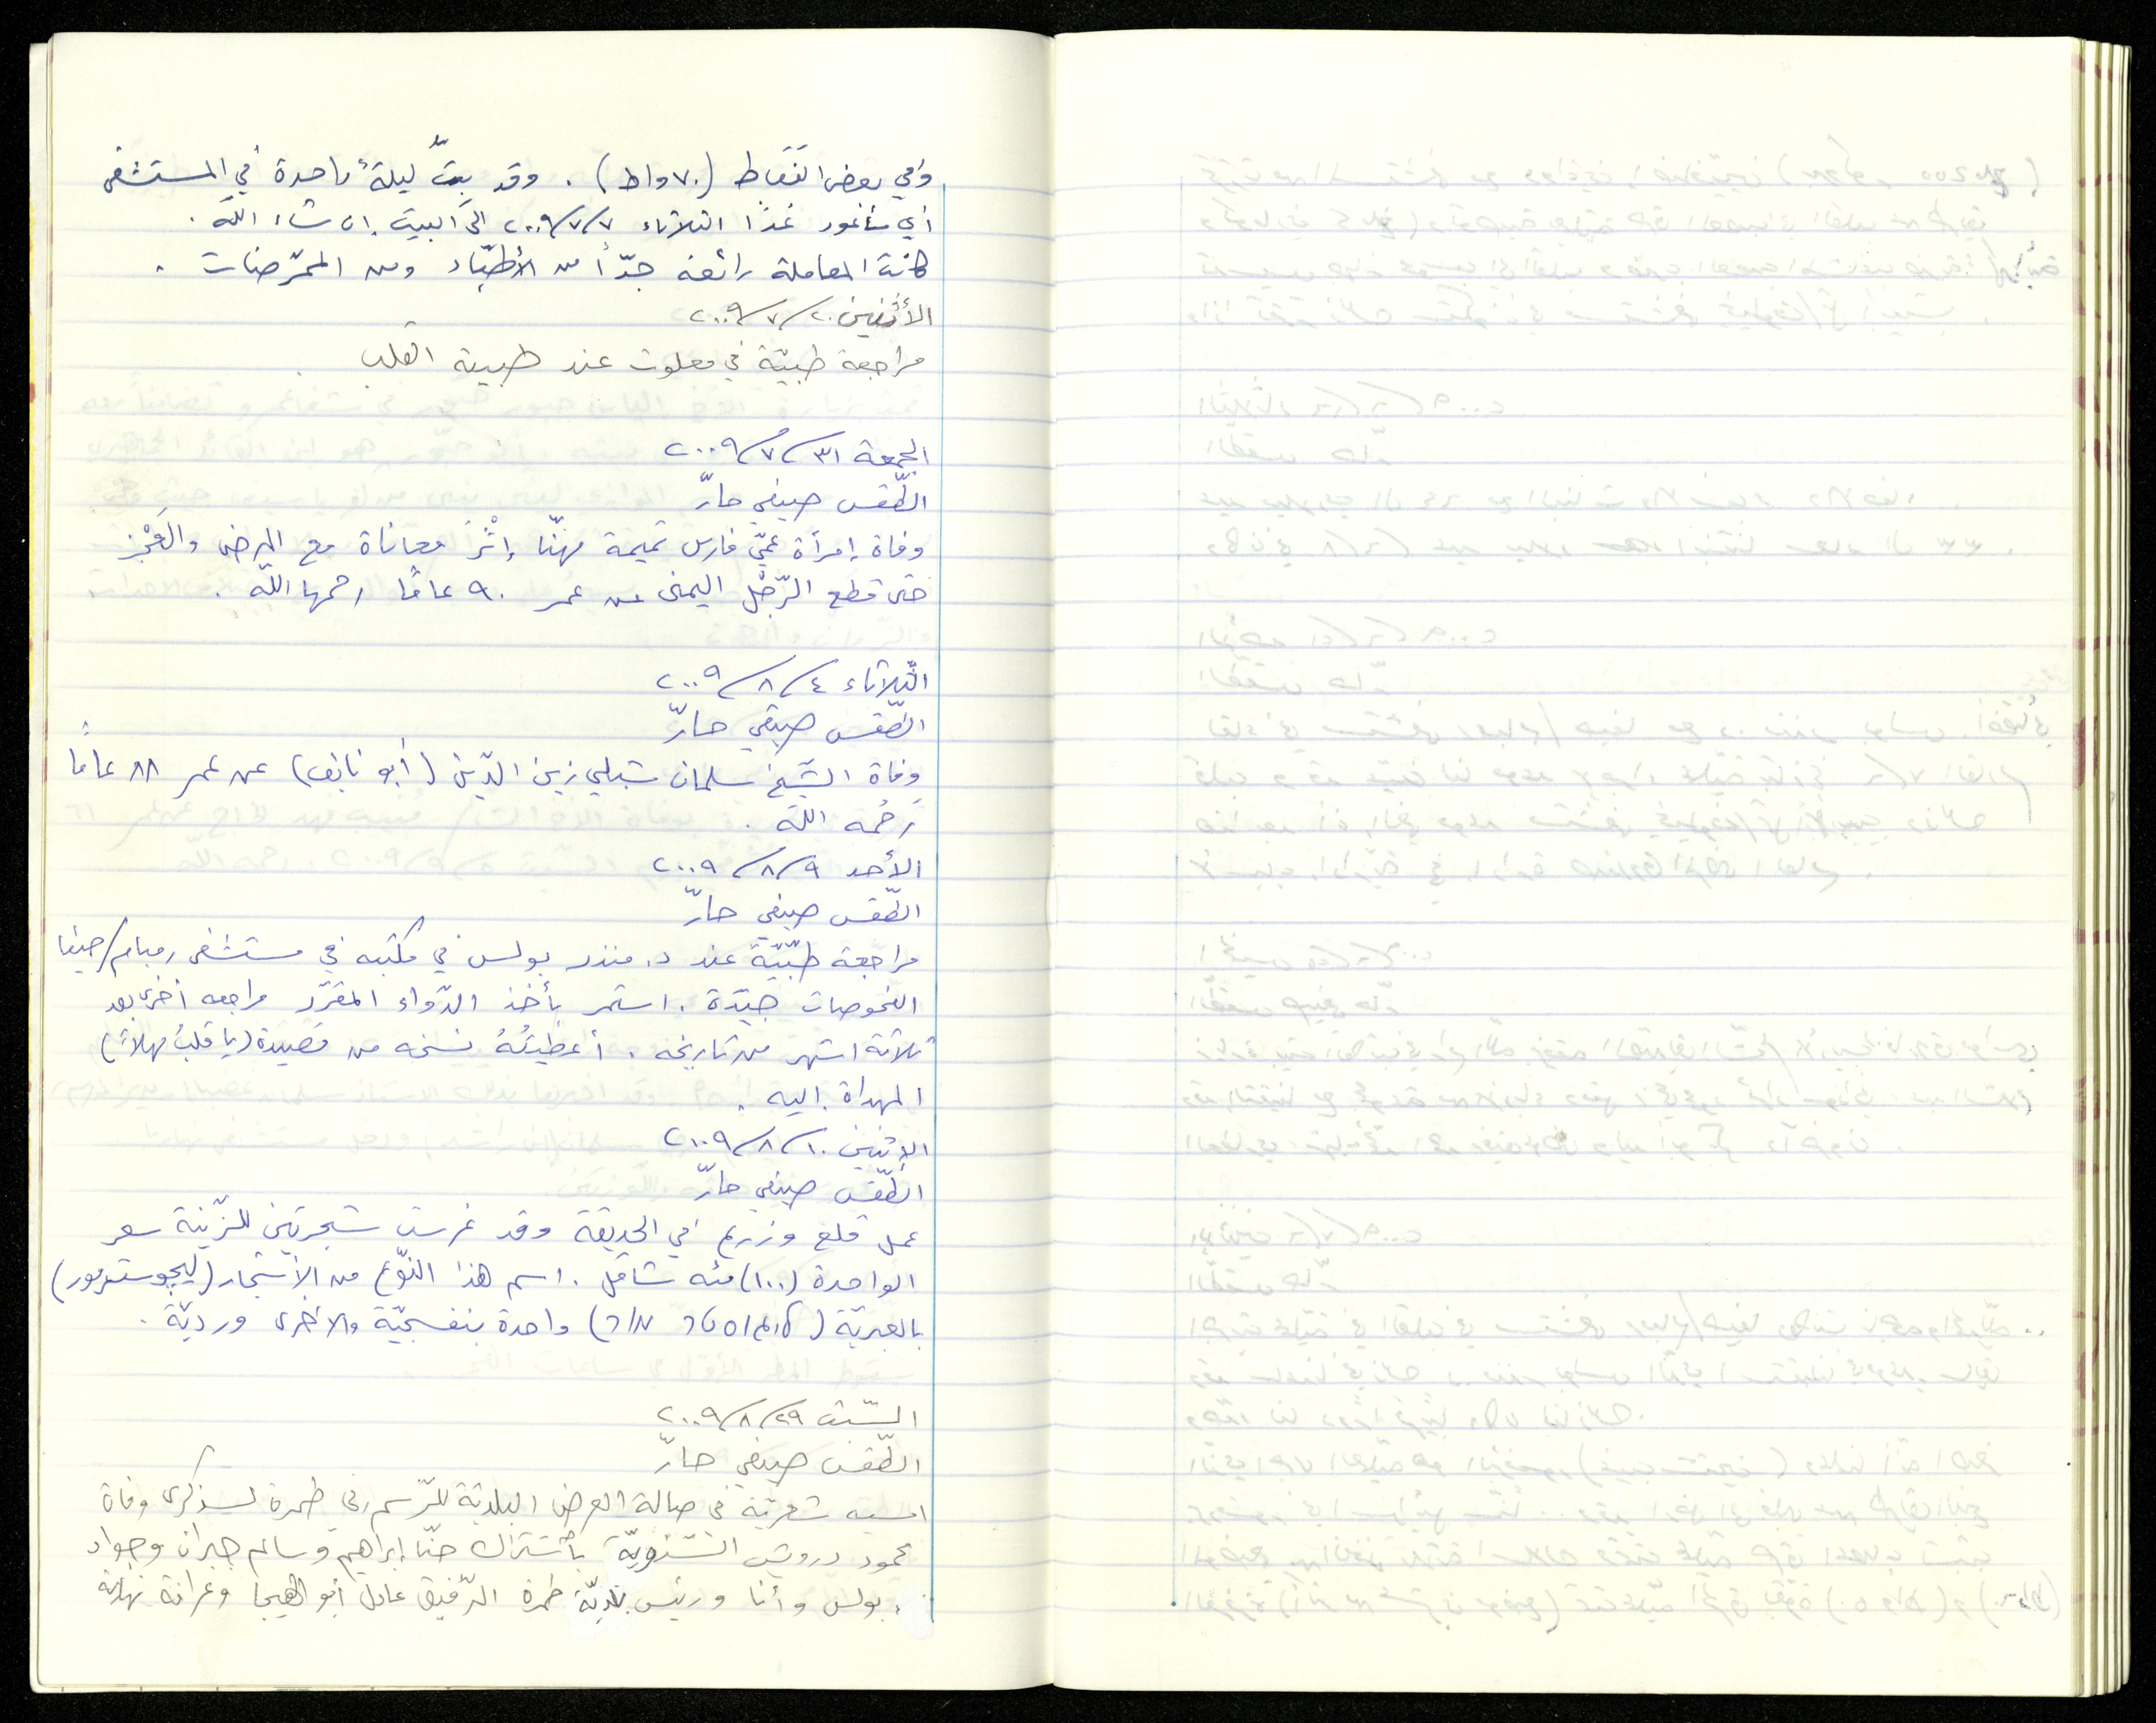 وفي بعض النقاط (٧٠ واط). وقد بتّ ليلةً واحدة في المستشفى
أي سأعود غدًا الثلاثاء ٢٠٠٩/٧/٧ الى البيت إن شاء الله.
كانت المعاملة رائعة جدًّا من الأطبّاء ومن الممرّضات.
الأثنين ٢٠٠٩/٧/٢٠
مراجعة طبيّة في معلوت عند طبيبة القلب
الجمعة ٢٠٠٩/٧/٣١
الطّقس صيفي حارّ
وفاة إمرأة عمّي فارس تميمة مهنّا إثْرَ معاناة مع المرض والعَجْز
حتى قطع الرّجْل اليمنى عن عمر ٩٠ عامًا رحمها اللّه.
الثّلاثاء ٢٠٠٩/٨/٤
الطّقس صيفي حارّ
وفاة الشّيخ سلمان شبلي زين الدّين (أبو نايف) عن عمر ٨٨ عامًا
رحمه الله.
الأحد ٢٠٠٩/٨/٩
الطّقس صيفي حارّ
مراجعة طبّيّة عند د. منذر بولس في مكتبه في مستشفى رمبام/حيفا
الفحوصات جيّدة. استمر بأخذ الدّواء المقرّر مراجعه أخرى بعد
ثلاثة اشهر من تاريخه. أعطيتُهُ نسخه من قصيدة (يا قلبُ مهلاً)
المهداة إليه.
الإثنين ٢٠٠٩/٨/١٠
الطّقس صيفي حارّ
عمل قلع وزريع في الحديقة وقد غرست شجرتين للزّينة سعر
الواحدة (١٠٠) مئه شاقل. اسم هذا النّوع من الأشجار (ليجوسترمور)
بالعبريّة واحدة بنفسجيّة والاخرى ورديّة.
السّبت ٢٠٠٩/٨/٢٩
الطّقس صيفي حارّ
امسيه شعريّة في صالة العرض البلديّة للرّسم في طمرة لذكرى وفاة
محمود درويش السّنويّة بأشتراك حنّا إبراهيم وسالم جبران وجواد
بولس وأنا ورئيس بلديّة طمرة الرّفيق عادل أبو الهيجا وعرافة